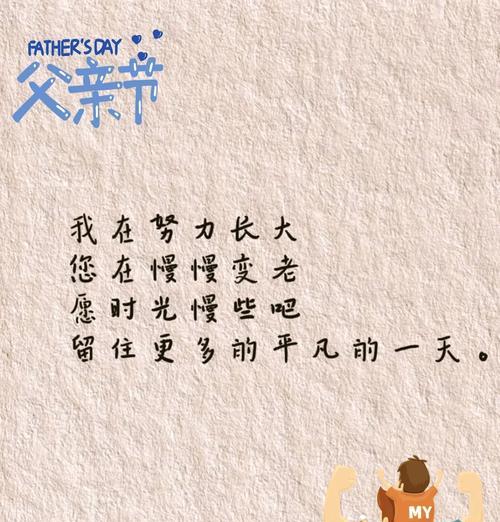 FATHER'S DAY
父亲节
我在努力长大
您在慢慢变老
愿时光慢些吧
留住更多的平凡的一天。
MY